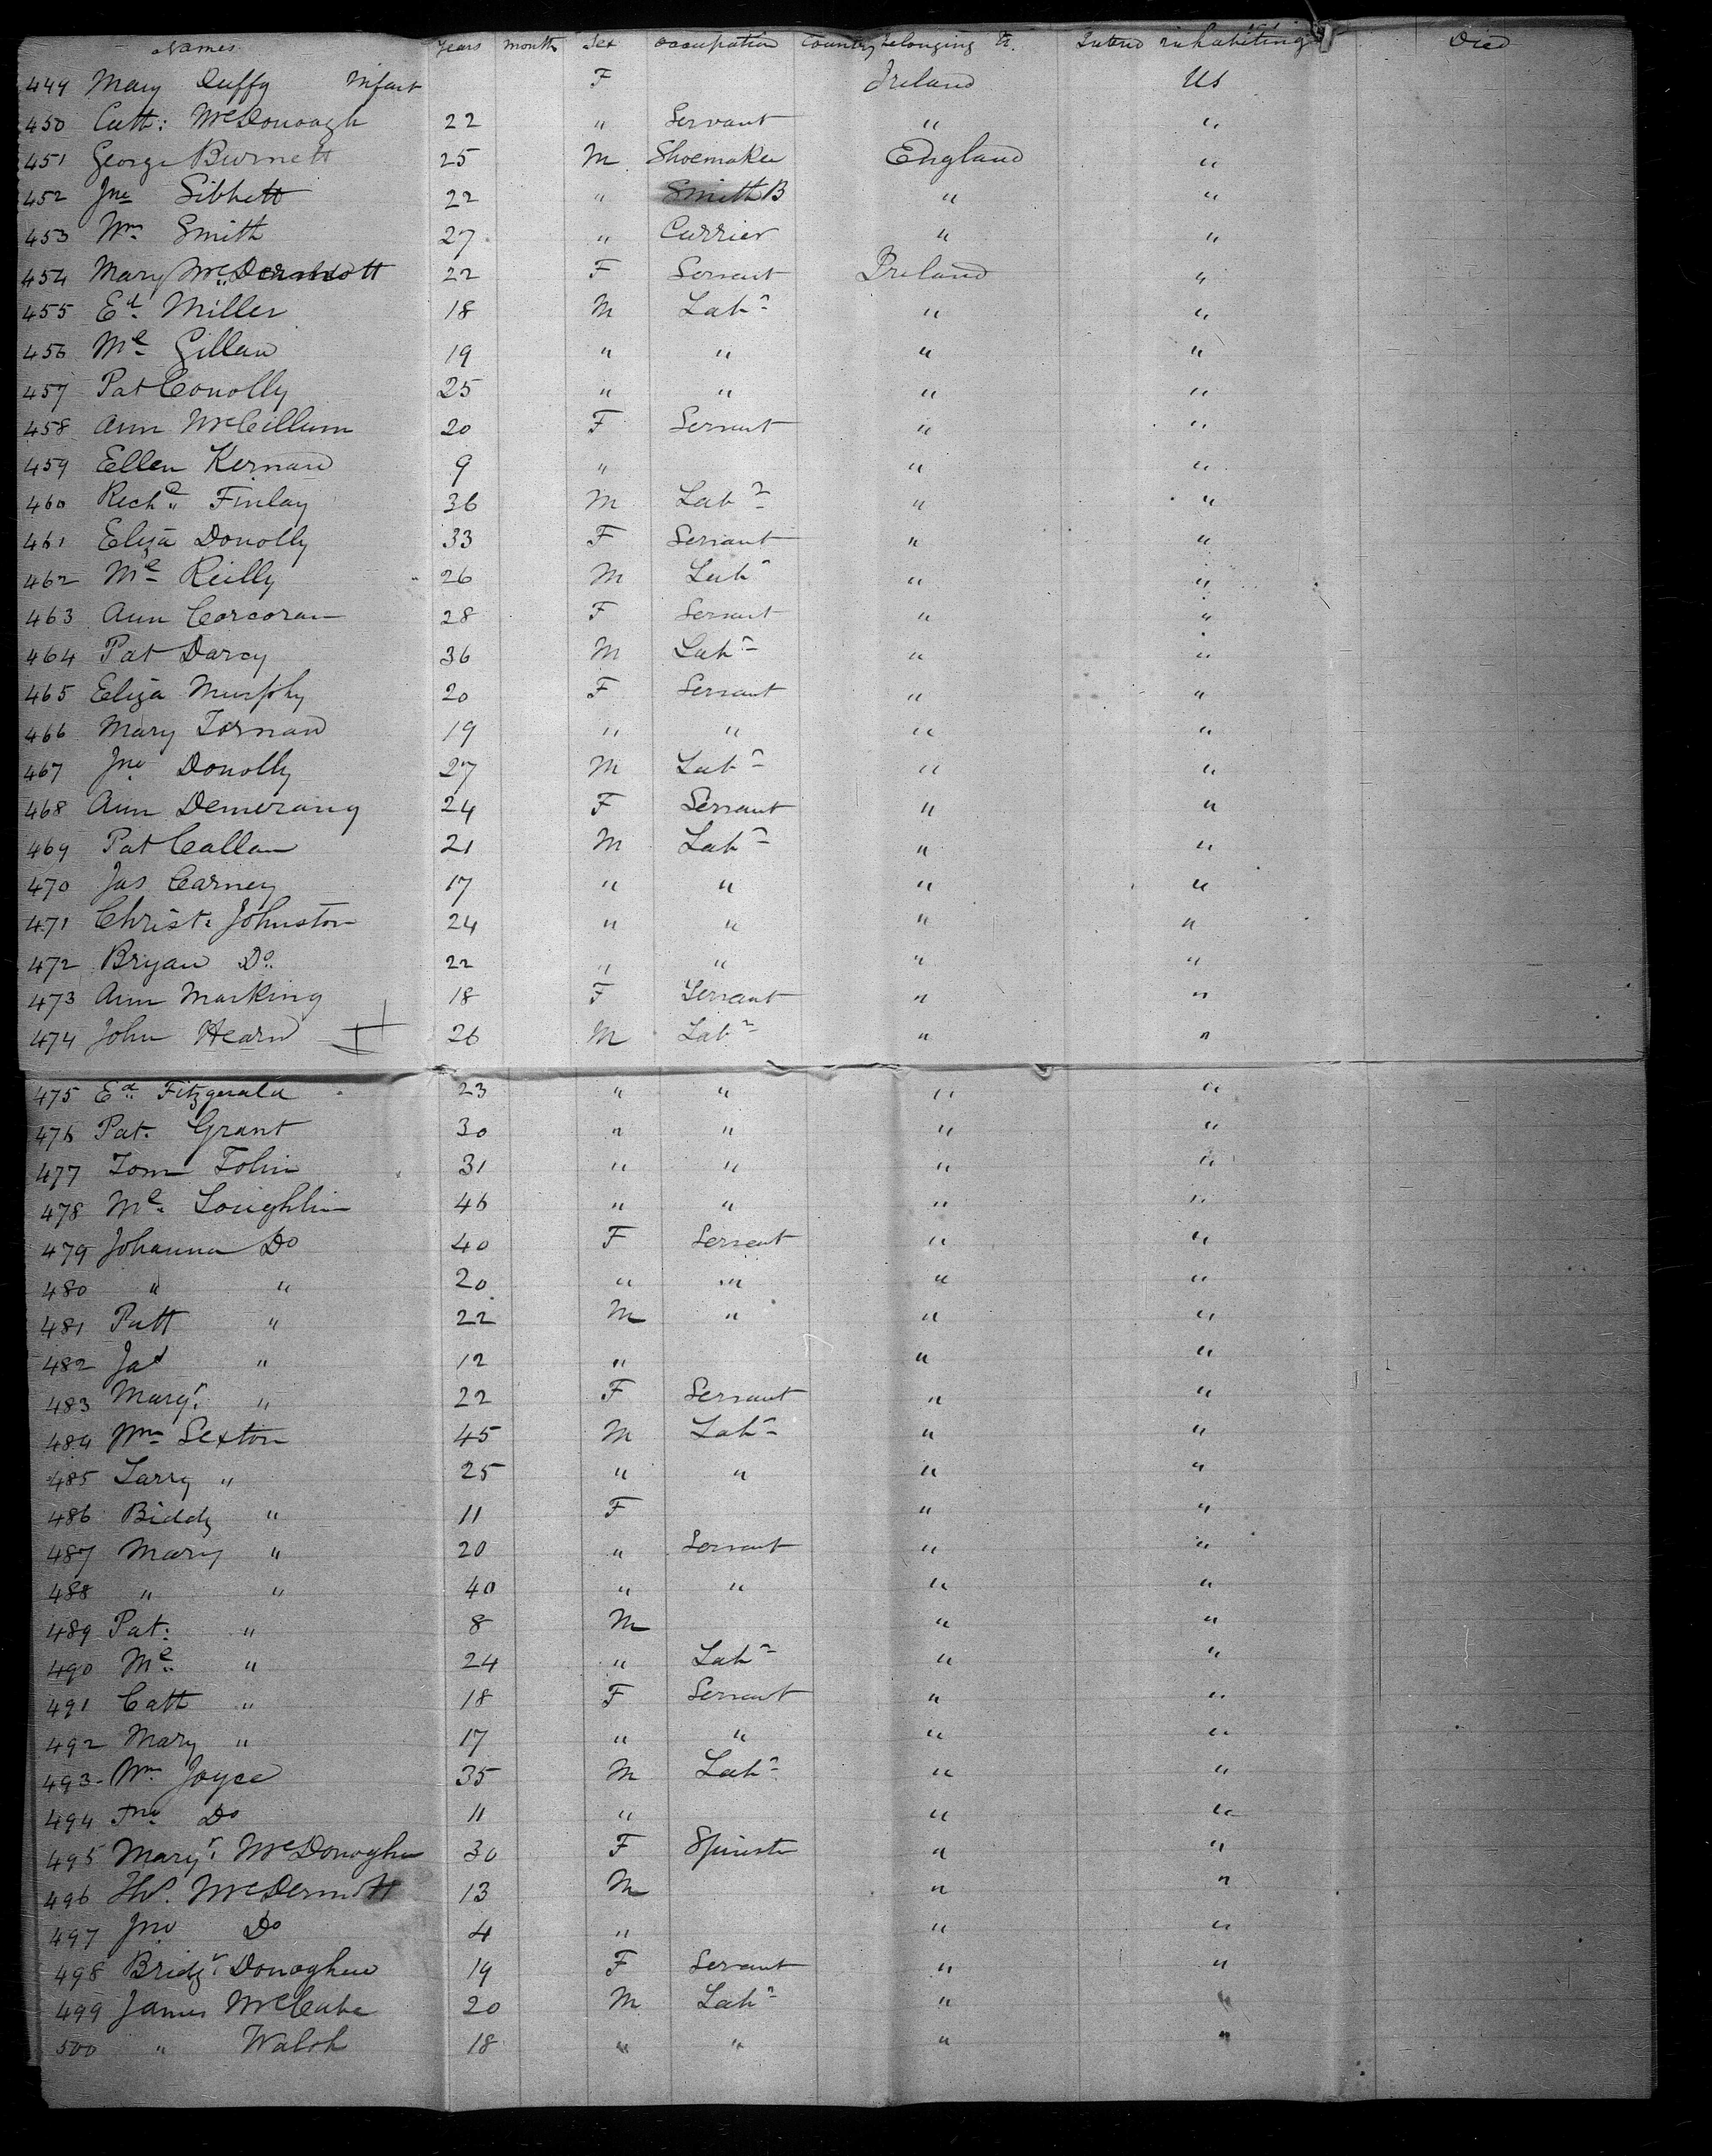 Names Years Months Sex Occupation Country belonging to. Intend inhabiting Died
449 Mary Duffy Infant F Ireland US
450 Cath: McDonough 22 " Servant " "
451 George Burnett 25 M Shoemaker England "
452 Jno Sibbett 22 " Smith B " "
453 Wm Smith 27 " Currier " "
454 Mary McDermott 22 F Servant Ireland "
455 Ed. Miller 18 M Labr " "
456 Ml Gillan 19 " " " "
457 Pat Conolly 25 " " " "
458 Ann McCillum 20 F Servant " "
459 Ellen Kernan 9 " " "
460 Richd Finlay 36 M Labr " "
461 Eliza Donolly 33 F Servant " "
462 Ml Reilly 26 M Labr " "
463 Ann Corcoran 28 F Servant " "
464 Pat Darcy 36 M Labr " "
465 Eliza Murphy 20 F Servant " "
466 Mary Tornan 19 " " " "
467 Jno Donolly 27 M Labr " "
468 Ann Demerang 24 F Servant " "
469 Pat Callan 21 M Labr " "
470 Jas Carney 17 " " " "
471 Christ: Johnston 24 " " " "
472 Bryan Do 22 " " " "
473 Ann Marking 18 F Servant " "
474 John Hearn 26 M Labr " "
475 Ed Fitzgerald 23 " " " "
476 Pat. Grant 30 " " " "
477 Tom Tobin 31 " " " "
478 Ml Loughlin 46 " " " "
479 Johanna Do 40 F Servant " "
480 " " 20 " " " "
481 Patt " 22 M " " "
482 Jas " 12 " " "
483 Margt " 22 F Servant " "
484 Wm Sexton 45 M Labr " "
485 Larry " 25 " " " "
486 Biddy " 11 F " "
487 Mary " 20 " Servant " "
488 " " 40 " " " "
489 Pat: " 8 M " "
490 Ml " 24 " Labr " "
491 Cath " 18 F Servant " "
492 Mary " 17 " " " "
493 Wm Joyce 35 M Labr " "
494 Jno Do 11 " " "
495 Margt McDonoghue 30 F Spinster " "
496 Ths. McDermott 13 M " "
497 Jno Do 4 " " "
498 Bridgt Donoghue 19 F Servant " "
499 James McCabe 20 M Labr " "
500 " Walsh 18 " " " "